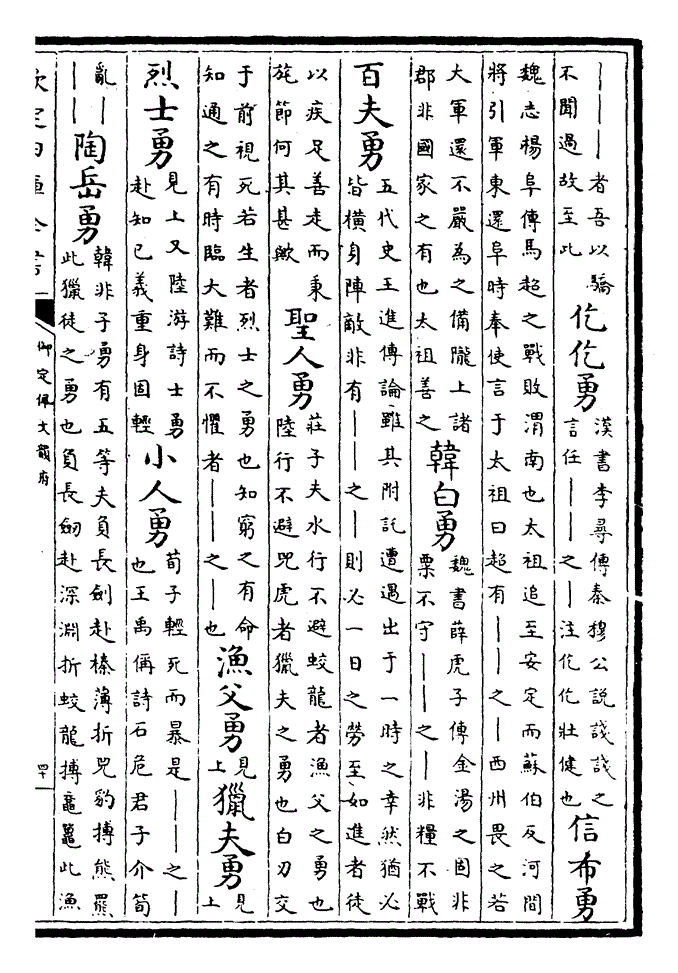 ｜｜｜者吾以驕
不聞過故至此
仡仡勇
漢書李尋傳秦穆公説諓諓之
言任｜｜之｜注仡仡壯健也
信布勇
魏志楊阜傳馬超之戰敗渭南也太祖追至安定而蘇伯反河間
將引軍東還阜時奉使言于太祖曰超有｜｜之｜西州畏之若
大軍還不嚴為之備隴上諸
郡非國家之有也太祖善之
韓白勇
魏書薛虎子傳金湯之固非
粟不守｜｜之｜非糧不戰
百夫勇
五代史王進傳論雖其附託遭遇出于一時之幸然猶必
皆橫身陣敵非有｜｜之｜則必一日之勞至如進者徒
以疾足善走而秉
旄節何其甚歟
聖人勇
莊子夫水行不避蛟龍者漁父之勇也
陸行不避兕虎者獵夫之勇也白刃交
于前視死若生者烈士之勇也知窮之有命
知通之有時臨大難而不懼者｜｜之｜也
漁父勇
見上
獵夫勇
見上
烈士勇
見上又陸游詩士勇
赴知己義重身固輕
小人勇
荀子輕死而暴是｜｜之｜
也王禹偁詩石危君子介筍
亂｜
｜｜
陶岳勇
韓非子勇有五等夫負長劍赴榛薄折兕豹搏熊羆
此獵徒之勇也負長劔赴深淵折蛟龍搏黿鼉此漁
欽定四庫全書
御定佩文韻府